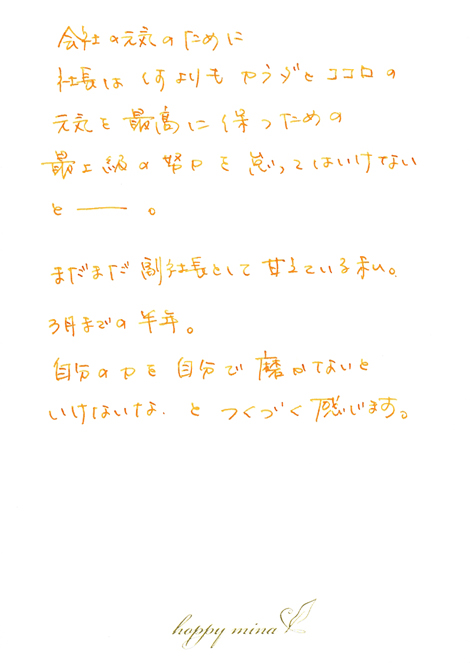 会社の元気のために
社長は何よりも カラダとココロの
元気を 最高に 保つための
最上級の努力を 怠ってはいけない
と ―― 。
まだまだ 副社長として 甘えている私。
3月までの 半年。
自分の力を 自分で 磨かないと
いけないな. と つくづく 感じます。
happy mina